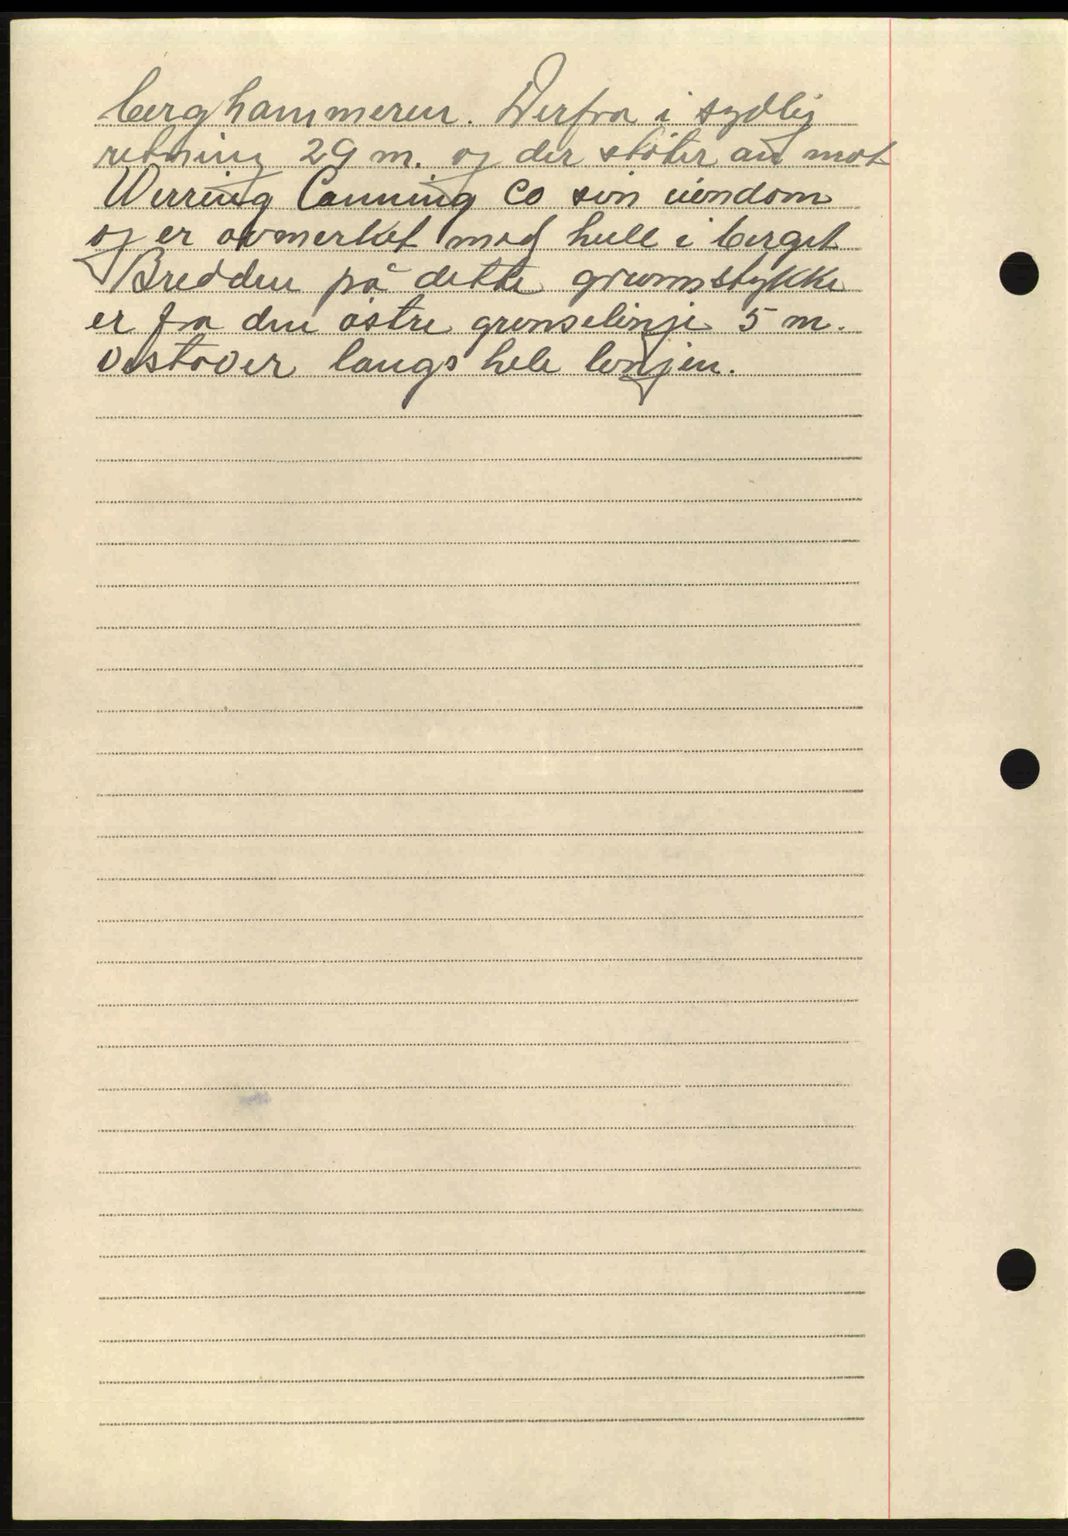 berghammeren. Derfra i sydlig
retning 29 m. og der støter an mot
Werring Canning Co sin eiendom
og er avmerket med hull i berget
Bredden på dette grunnstykke
er fra den østre grenselinje 5 m.
vestover langs hele linjen.